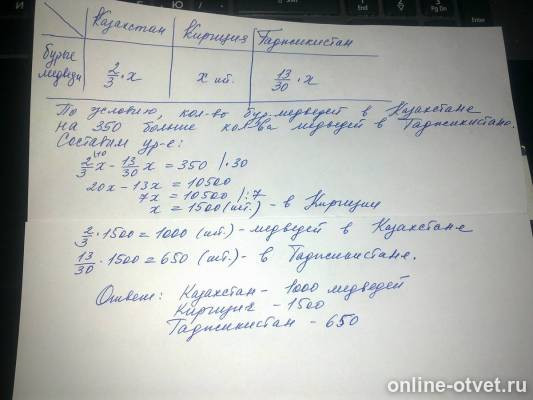 Казахстан Киргизия Таджикистан
бурые медведи 2/3 · x x шт. 13/30 · x
По условию, кол-во бур. медведей в Казахстане
на 350 больше кол-ва медведей в Таджикистане.
Составим ур-е:
2/3 \10 x - 13/30 x = 350 | · 30
20x - 13x = 10500
7x = 10500 | : 7
x = 1500 (шт.) - в Киргизии
2/3 · 1500 = 1000 (шт.) - медведей в Казахстане
13/30 · 1500 = 650 (шт.) - в Таджикистане.
Ответ: Казахстан - 1000 медведей
Киргизия - 1500
Таджикистан - 650
online-otvet.ru